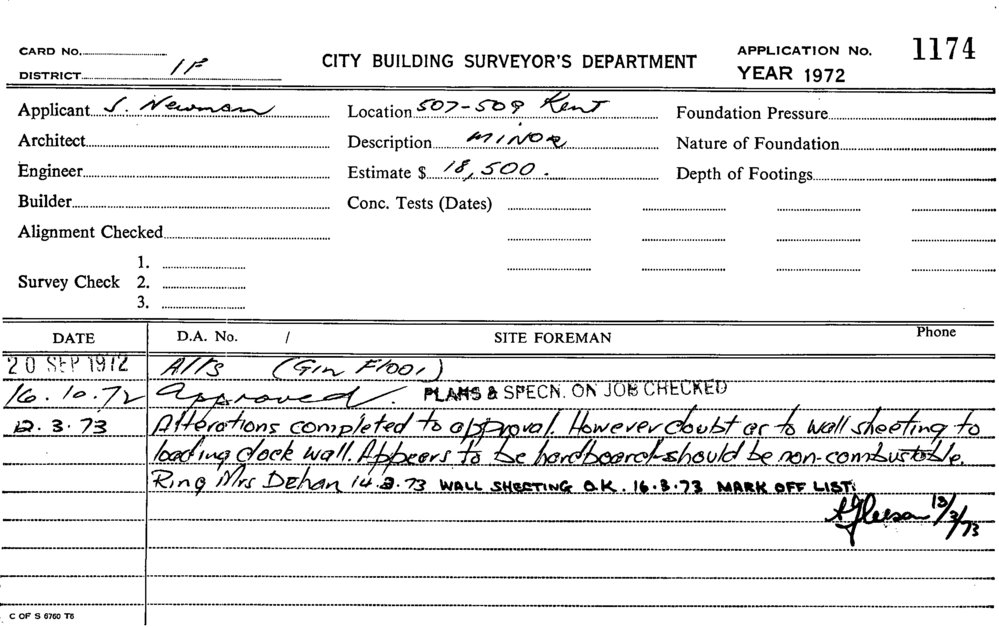 CARD No.
DISTRICT 1F
CITY BUILDING SURVEYOR'S DEPARTMENT
APPLICATION No. 1174
YEAR 1972
Applicant J. Newman
Location 507-509 Kent
Foundation Pressure
Architect
Description MINOR
Nature of Foundation
Engineer
Estimate $ 18,500.
Depth of Footings
Builder
Conc. Tests (Dates)
Alignment Checked
Survey Check 1.
2.
3.
DATE
D.A. No. /
SITE FOREMAN
Phone
20 SEP 1972 Alts (Grn Floor)
16.10.72 Approved. PLANS & SPECN. ON JOB CHECKED
12.3.73 Alterations completed to approval. However doubt as to wall sheeting to
loading dock wall. Appears to be hardboard-should be non-combustable.
Ring Mrs Dehan 14.3.73 WALL SHEETING O.K. 16.3.73 MARK OFF LIST.
AGleeson 13/3/73
C OF S 6760 T6